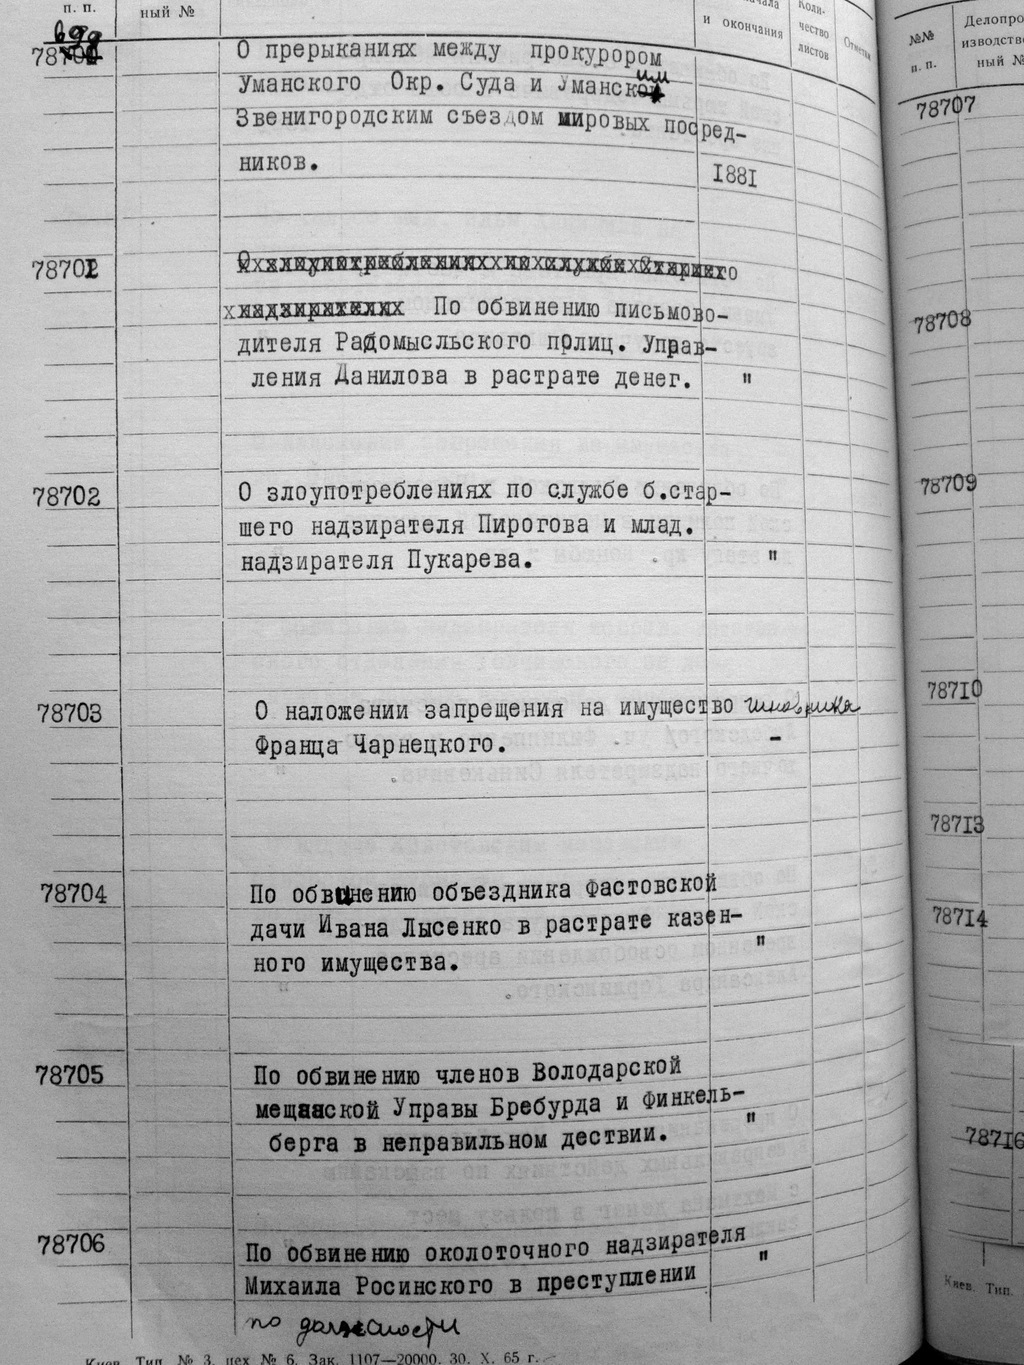 п. п.
ный №
начала
и окончания
Коли-
чество
листов
Отметки
699
О прерыканиях между прокурором
Уманского Окр. Суда и Уманским
Звенигородским съездом мировых посред-
ников.
1881
78701
По обвинению письмово-
дителя Радомысльского полиц. Управ-
ления Данилова в растрате денег. "
78702
О злоупотреблениях по службе б.стар-
шего надзирателя Пирогова и млад.
надзирателя Пукарева. "
78703
О наложении запрещения на имущество чиновника
Франца Чарнецкого. -
78704
По обвинению объездника Фастовской
дачи Ивана Лысенко в растрате казен-
ного имущества. "
78705
По обвинению членов Володарской
мещанской Управы Бребурда и Финкель-
берга в неправильном дествии. "
78706
По обвинению околоточного надзирателя
Михаила Росинского в преступлении "
по должности
Киев. Тип. № 3, цех № 6. Зак. 1107—20000. 30. X. 65 г.
№№
п. п.
Делопро-
изводствен-
ный №
78707
78708
78709
78710
78713
78714
78716
Киев. Тип.